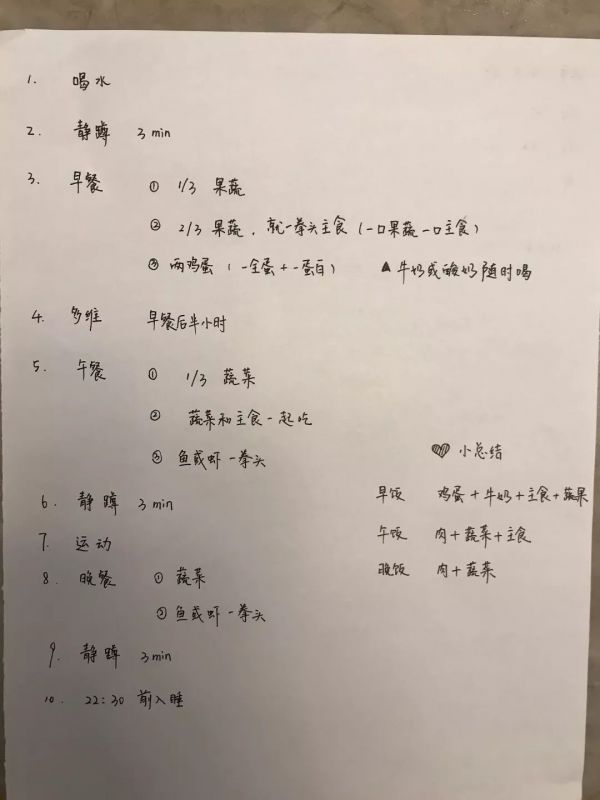 1. 喝水
2. 静蹲 3 min
3. 早餐 ① 1/3 果蔬
② 2/3 果蔬，就一拳头主食（一口果蔬一口主食）
③ 两鸡蛋（一全蛋+一蛋白） ▲牛奶或酸奶随时喝
4. 多维 早餐后半小时
5. 午餐 ① 1/3 蔬菜
② 蔬菜和主食一起吃
③ 鱼或虾一拳头
6. 静蹲 3 min
7. 运动
8. 晚餐 ① 蔬菜
② 鱼或虾一拳头
9. 静蹲 3 min
10. 22:30 前入睡
♥ 小总结
早饭 鸡蛋+牛奶+主食+蔬果
午饭 肉+蔬菜+主食
晚饭 肉+蔬菜